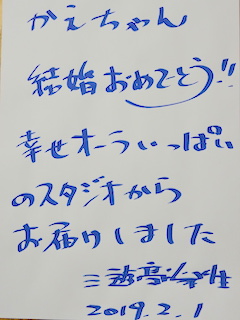 かえちゃん
結婚おめでとう!!
幸せオーラいっぱい
のスタジオから
お届けしました
2019.2.1